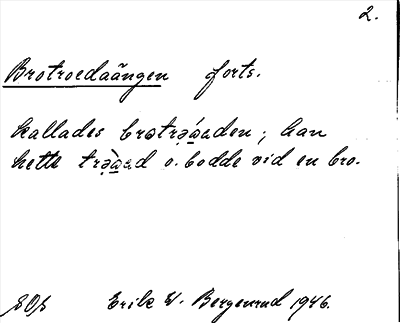 2.
Brotroedaängen forts.
kallades brotrǝ̣áaden; han
hette trǝ̣̀a̲ad o. bodde vid en bro.
Erik W. Bergenrud 1946.